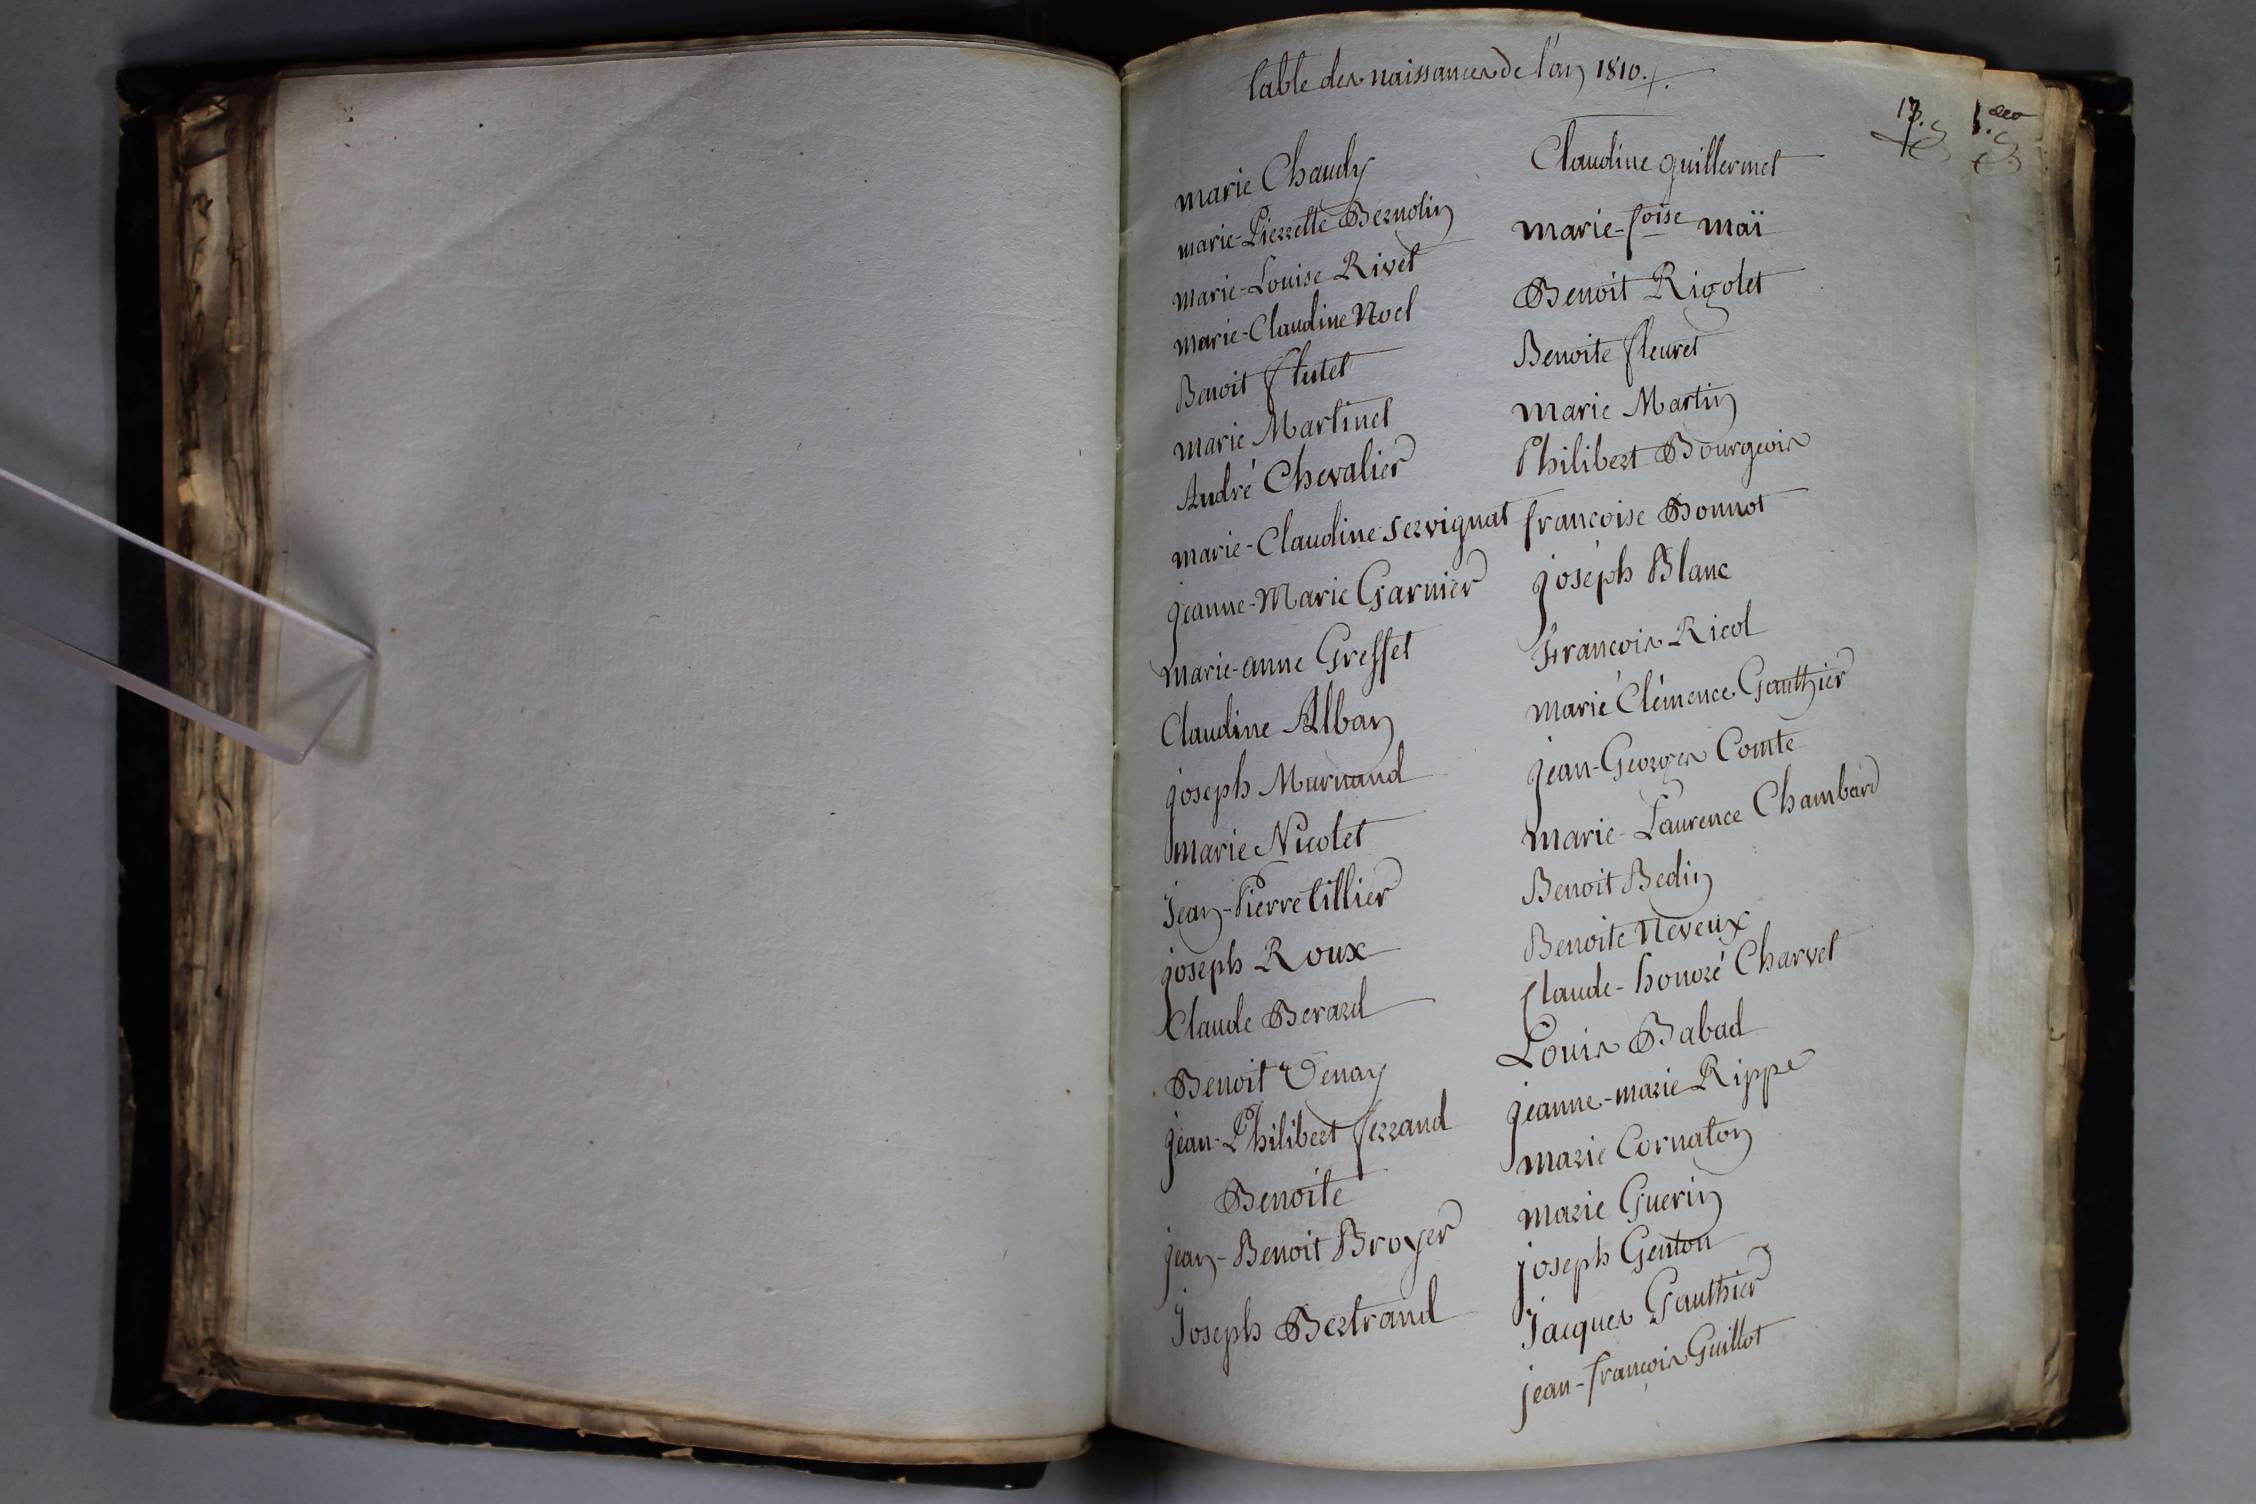 table des naissances de l'an 1810.
13.
marie Chaudy
marie-Pierrette Bernolin
marie-Louise Rivet
marie-Claudine Noel
Benoit flutet
marie Martinet
André Chevalier
marie-Claudine servignat
jeanne-Marie Garnier
marie-anne Greffet
Claudine Alban
joseph Marnand
marie Nicolet
jean-Pierre tillier
joseph Roux
Claude Berard
Benoit Venay
jean-Philibert ferrand
Benoite
jean-Benoit Broyer
joseph Bertrand
Claudine guillermet
marie-foise maï
Benoit Rigolet
Benoite fleuret
marie Martin
Philibert Bourgeois
francoise Bonnot
joseph Blanc
francois Ricol
marie Clémence Gauthier
jean-Georges Comte
marie-Laurence Chambard
Benoit Bedin
Benoite neveux
Claude-honoré Charvet
Louis Babad
jeanne-marie Rippe
marie Cornaton
marie Guerin
joseph Genton
jacques Gauthier
jean-françois Guillot